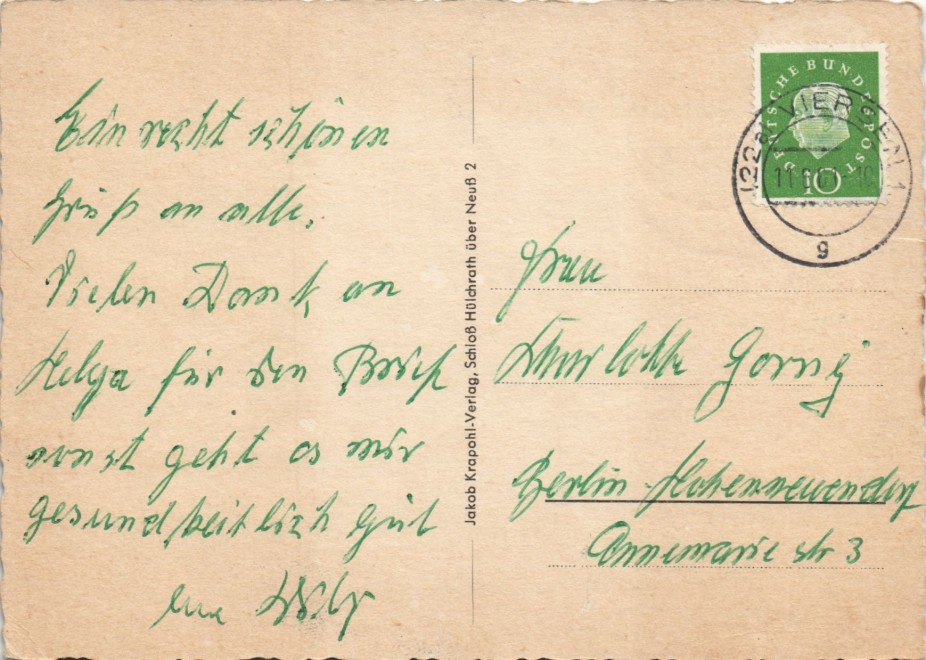 Ein recht schönen
Gruß an alle.
Vielen Dank an
Helga für den Brief
sonst geht es mir
gesundheitlich gut
eure
Jakob Krapohl-Verlag, Schloß Hülchrath über Neuß 2
DEUTSCHE BUNDESPOST
10
(22a) VIERSEN 1
g
Frau
Charlotte Gornig
Berlin-Hohenneuendorf
Annemarie str 3